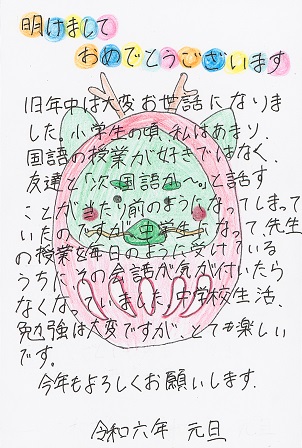 明けまして
おめでとうございます
旧年中は大変お世話になりま
した。小学生の頃、私はあまり、
国語の授業が好きではなく、
友達と「次、国語か〜。」と話す
ことが当たり前のようになってしまって
いたのですが、中学生になって、先生
の授業を毎日のように受けている
うちに、その会話が気が付いたら
なくなっていました。中学校生活、
勉強は大変ですが、とても楽しい
です。
今年もよろしくお願いします。
令和六年 元旦